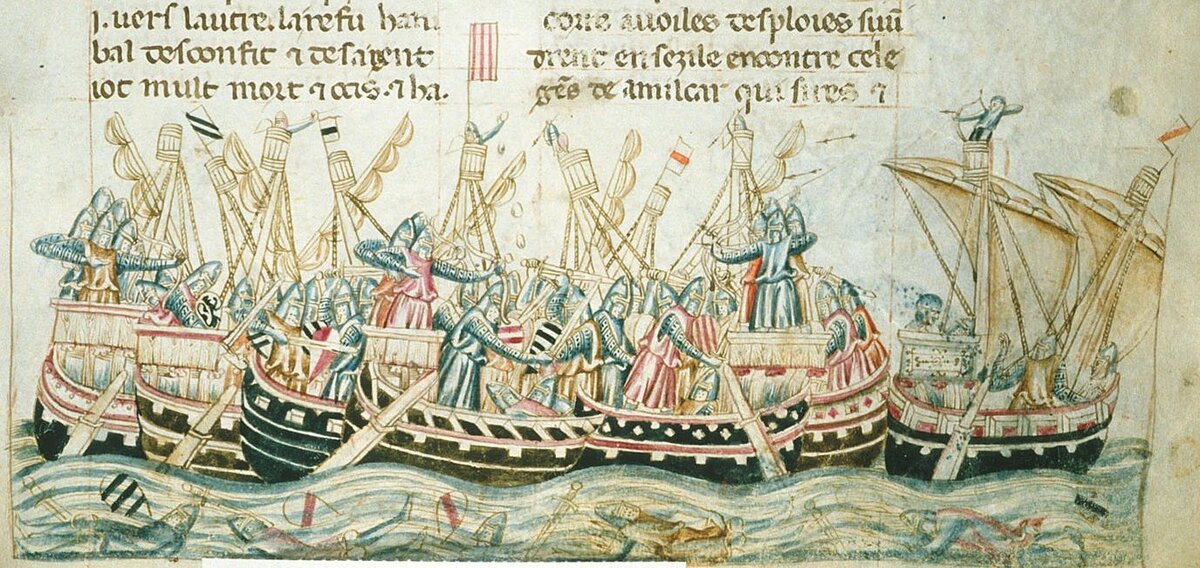 j. uers lautre. la refu hani
bal desconfit ⁊ desa gent
iot mult mort ⁊ ocis. ⁊ ha.
core auoiles desploies suiu
drent en sezile encontre cele
gēs de amilcar qui sires ⁊